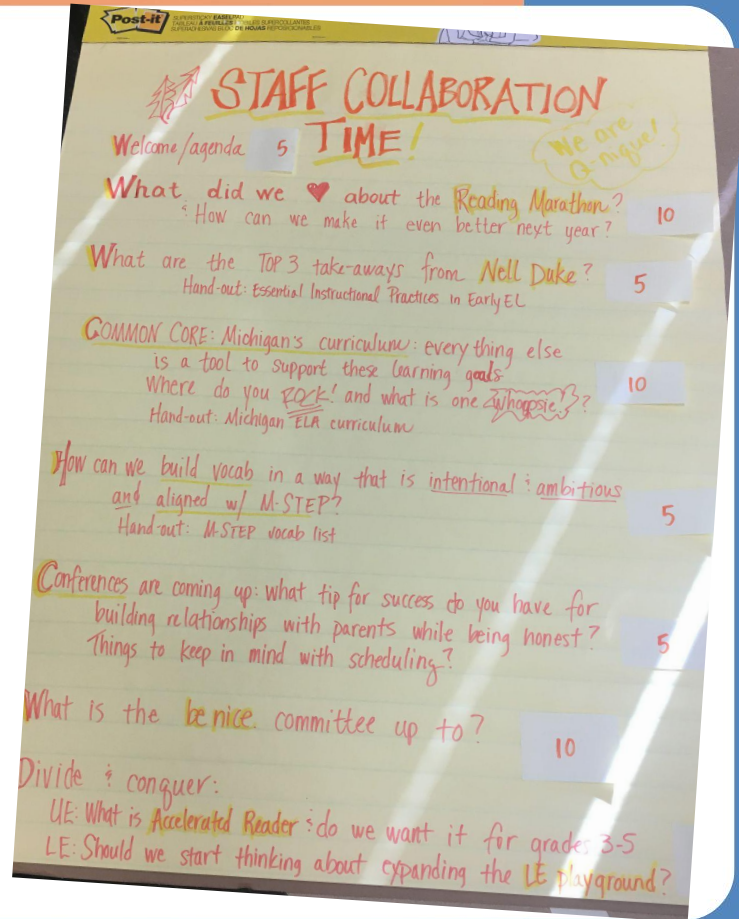 Post-it
SUPERSTICKY EASEL PAD
TABLEAU À FEUILLES MOBILES SUPERCOLLANTES
SUPERADHESIVAS BLOC DE HOJAS REPOSICIONABLES
STAFF COLLABORATION
TIME!
We are
Q-nique!
Welcome/agenda 5
What did we ♥ about the Reading Marathon?
& How can we make it even better next year? 10
What are the TOP 3 take-aways from Nell Duke?
Hand-out: Essential Instructional Practices in Early EL 5
COMMON CORE: Michigan's curriculum: everything else
is a tool to support these learning goals.
Where do you ROCK! and what is one whoopsie!? 10
Hand-out: Michigan ELA curriculum
How can we build vocab in a way that is intentional & ambitious
and aligned w/ M-STEP? 5
Hand-out: M-STEP vocab list
Conferences are coming up: what tip for success do you have for
building relationships with parents while being honest? 5
Things to keep in mind with scheduling?
What is the be nice. committee up to? 10
Divide & conquer:
UE: What is Accelerated Reader & do we want it for grades 3-5
LE: Should we start thinking about expanding the LE playground?